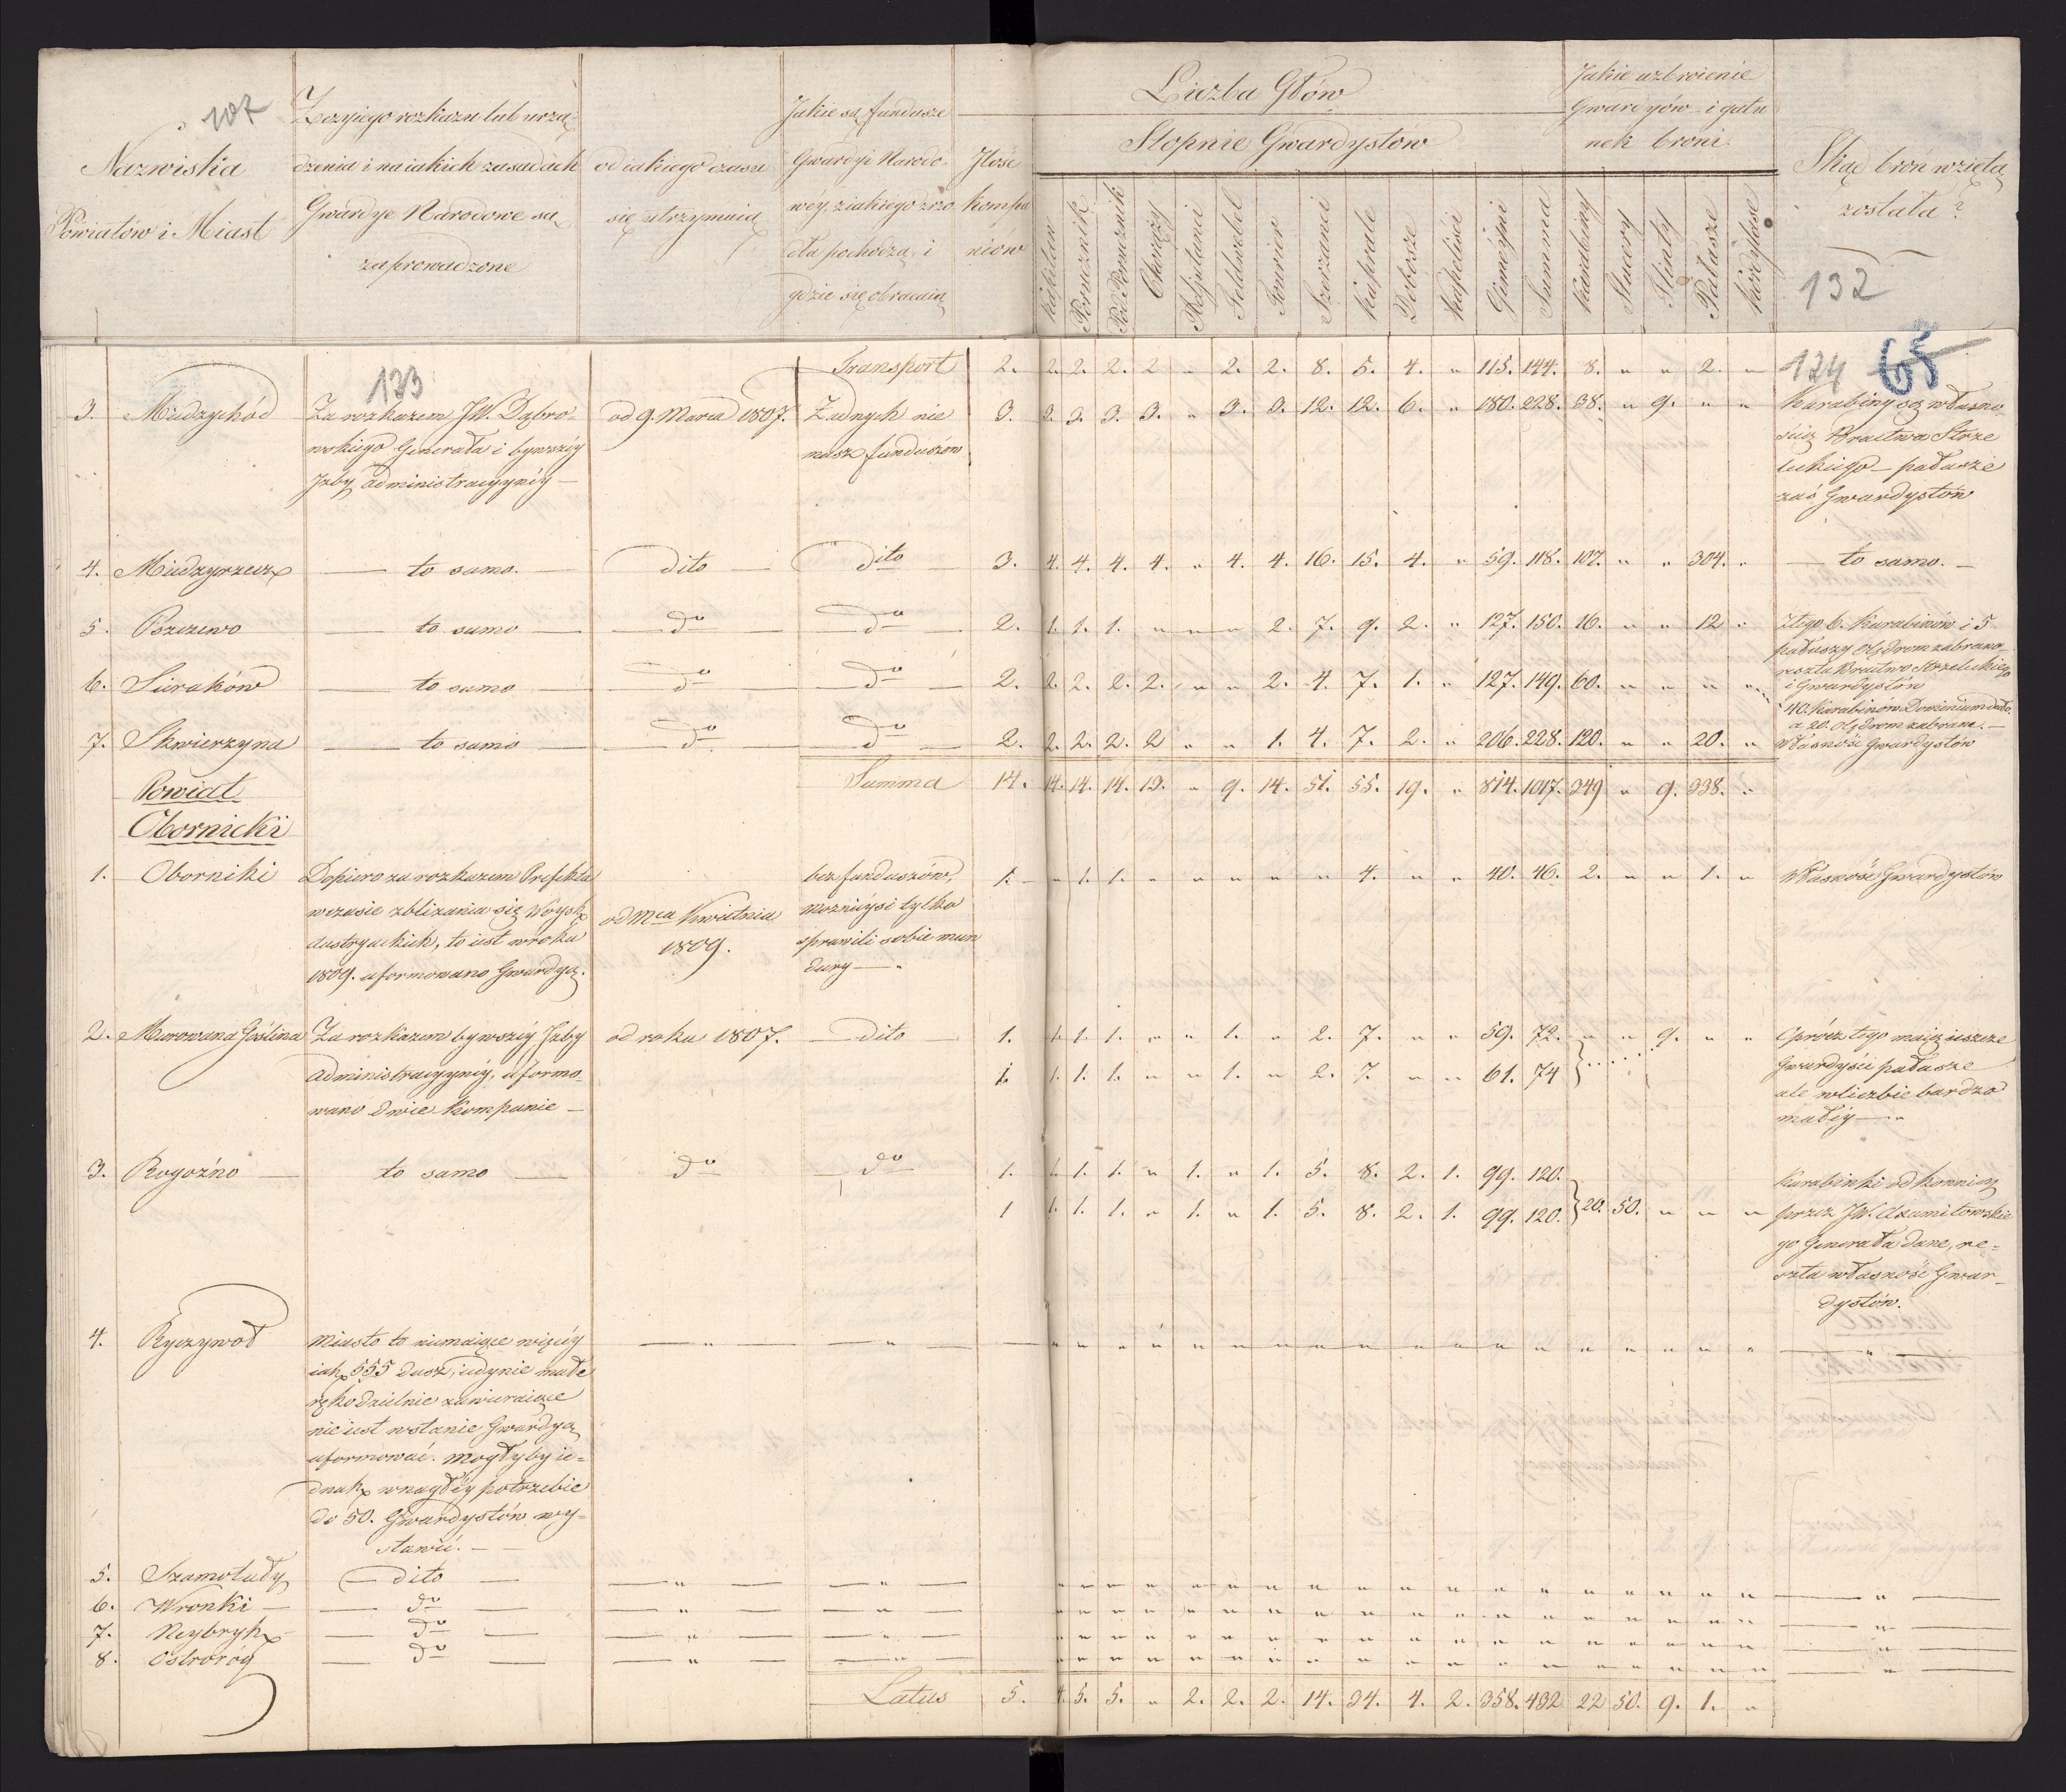 107
Nazwiska
Powiatów i Miast
Z czyiego rozkazu lub urzą-
dzenia i na iakich zasadach
Gwardye Narodowe są
zaprowadzone
od iakiego czasu
się utrzymuią
Jakie są fundusze
Gwardyi Narodo-
wéy, z iakiego zrzó
dła pochodzą, i
gdzie się obracaią
Jlość
kompa
niów
Liczba Głów
Stopnie Gwardystów
Kapitan
Porucznik
Pod Porucznik
Chorąży
Adjutenci
Feldwebel
Fourier
Szerzanci
Kaprale
Dobosze
Kapeliści
Gimeyni
Summa
Jakie uzbroienie
Gwardyów i gatu
nek broni
Karabiny
Stucery
Flinty
Pałasze
Kordylase
Skąd broń wzięta
została?
132
133
124 65
Transport 2. 2. 2. 2. 2 " 2. 2. 8. 5. 4. " 115. 144. 8. " " 2. "
3. Międzychód Za rozkazem JW. Dąbro- od 9. Marca 1807. Żadnych nie 3. 3. 3. 3. 3. " 3. 3. 12. 12. 6. " 180. 228. 38. " 9. " " Karabiny są własno
wskiego Generała i bywszéy masz funduszów
Jzby administracyynéy —
ścią Bractwa Strze
leckiego — pałasze
zaś Gwardystów
4. Miedzyrzecz — to samo. — dito — dito 3. 4. 4. 4. 4. " 4. 4. 16. 15. 4. " 59. 118. 107. " " 304. " — to samo. —
5. Pszczewo — to samo — do — do — 2. 1. 1. 1. " " " 2. 7. 9. 2. " 127. 150. 16. " " 12 " Z tego 6. Karabinów i 5
pałaszy Olędrom zabrano
reszta Bractwo Strzeleckiego
i Gwardystów
6. Sieraków — to samo — do — do — 2. 2. 2. 2. 2. " " 2. 4. 7. 1. " 127. 149. 60. " " " "
40. Karabinów Dominium dało.
a 20. Olędrom zabrane. —
7. Skwierzyna — to samo — do — do — 2. 2. 2. 2. 2 " " 1. 4. 7. 2. " 206. 228. 120. " " 20. " Własność Gwardystów
Summa 14. 14. 14. 14. 13. " 9. 14. 51. 55. 19. " 814. 1017. 349 " 9. 338. "
Powiat
Obornicki
1. Oborniki Dopiero za rozkazem Prefekta bez funduszów, 1. " 1. 1. " " " " " 4. " " 40. 46. 2. " " 1. " Własność Gwardystów
w czasie zbliżania się Woysk od Mca Kwietnia możnieysi tylko
Austryackich, to iest w roku 1809. sprawili sobie mun
1809. uformowano Gwardyą. dury — "
2. Murowana Goślina Za rozkazem bywszéy Jzby od roku 1807. — dito — 1. 1. 1. 1. " " 1. " 2. 7. " " 59. 72. " " 9. " " Oprócz tego maią ieszcze
Administracyynéy, uformo- 1. 1. 1. 1. " " 1. " 2. 7. " " 61. 74 Gwardyści pałasze
wano dwie Kompanie — ale w liczbie bardzo
małéy — "
3. Rogoźno — to samo — do — do 1. 1. 1. 1. " 1. " 1. 5. 8. 2. 1. 99. 120. Karabinki od konnicy
1 1. 1. 1. " 1. " 1. 5. 8. 2. 1. 99. 120. 20. 50. " " " przez JW. Axamitowskie
go Generała dane, re-
szta własność Gwar-
dystów.
4. Ryczywół Miasto to niemaiące więcéy — " — — " — — " " " " " " " " " " " " " " " " " " — " —
iak 555 dusz, iedynie małe
rękodzielnie zawieraiące
nie iest w stanie Gwardyą
uformować. Mogłyby ie-
dnak w nagłéy potrzebie
do 50. Gwardystów wy-
stawić. —
5. Szamotuły — dito — — " — — " — " " " " " " " " " " " " " " " " " " — " —
6. Wronki — — do — — " — — " — " " " " " " " " " " " " " " " " " " — " —
7. Neybryk — do — — " — — " — " " " " " " " " " " " " " " " " " " — " —
8. Ostroróg — do — — " — — " — " " " " " " " " " " " " " " " " " " — " —
Latus 5. 4. 5. 5. " 2. 2. 2. 14. 34. 4. 2. 358. 432 22 50. 9. 1. "